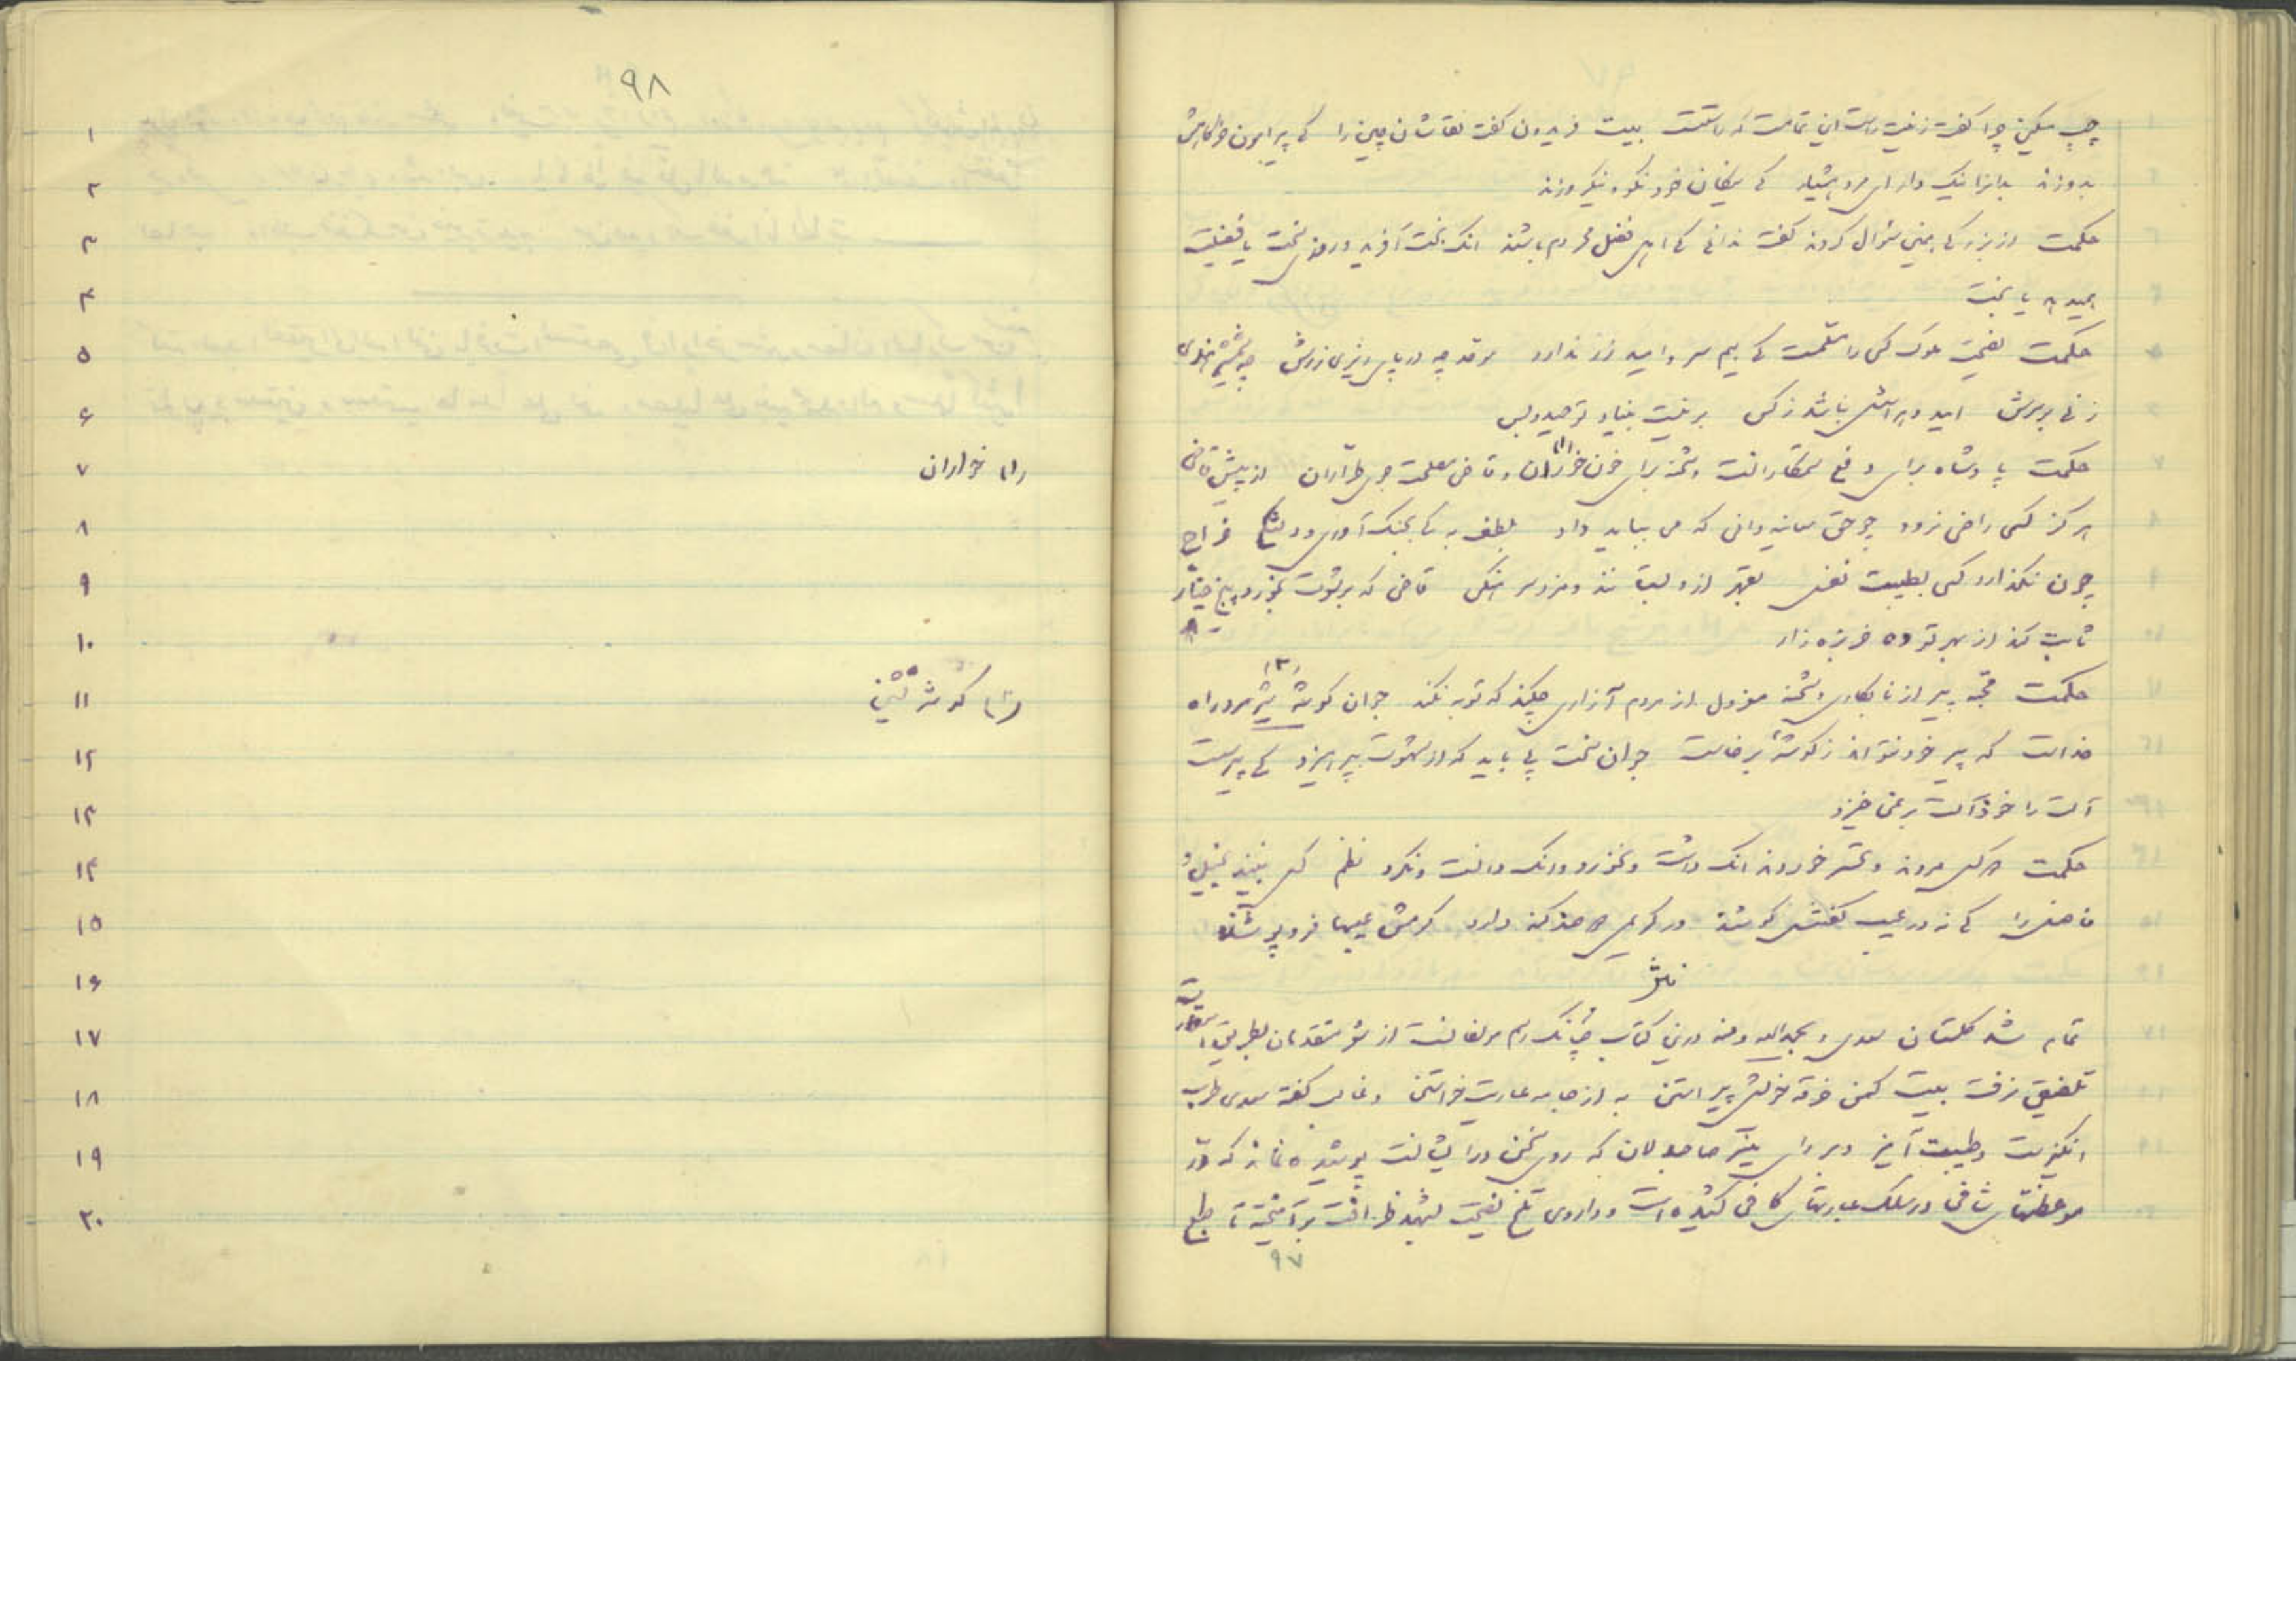 چپ مسکین چرا گفت زینت راست این تمامست که راستست بیت فریدون گفت نقاشان چین را کی پیرامون خرگاهش
بدوزند بدانرا نیک دار ای مرد هشیار کی نیکان خود نکو و نیک روزند
حکمت از بزرگی بمین سؤال کردند گفت ندانی کی اهل فضل محروم باشند انک بخت آفرید و روزی سخت یا فضیلت
همیدهد یا بخت
حکمت نصیحت ملوک کسی را مسلمست کی بیم سر و امید زر ندارد موحد چه در پای ریزی زرش چه شمشیر هندی
زنی بر سرش امید و هراسش نباشد ز کس برینست بنیاد توحید و بس
حکمت پادشاه برای دفع ستمکارانست و شحنه برای خون خواران (۱) و قاضی مصلحت جوی طراران از پیش قاضی
هرگز کسی راضی نرود چو حق معاینه دانی که می بباید داد بلطف به کی بجنگ آوری و دلتنگی خراج
چون نگذارد کسی بطیبت نفس بقهر ازو بستانند و مزد سرهنگی قاضی که برشوت بخورد پنج خیار
ثابت کند از بهر تو ده خربزه زار
حکمت قحبه پیر از نابکاری و شحنه معزول از مردم آزاری چکند که توبه نکند جوان گوشه نشین (۲) شیر مرد راه
خداست که پیر خود نتواند ز گوشهٔ برخاست جوان سخت پی باید که از شهوت بپرهیزد کی پیر سست
آلت را خود آلت بر نمی خیزد
حکمت دو کس مردند و تحسر خوردند انک داشت و نخورد و انک دانست و نکرد نظم کس نبیند بخیل
فاضل را کی نه در عیب گفتنش کوشد ور کریمی دو صد گنه دارد کرمش عیبها فرو پوشد
تمام شد گلستان سعدی و بحمد الله و منه درین کتاب چنانک رسم مؤلفانست از شعر متقدمان بطریق استعارت
تلفیق نرفت بیت کهن خرقه خویش پیراستن به از جامه عاریت خواستن و غالب گفته سعدی طرب
انگیزست و طیبت آمیز و بر رای منیر صاحبدلان که روی سخن در ایشانست پوشیده نماند که در
موعظتهای شافی در سلک عبارتهای کافی کشیده است و داروی تلخ نصیحت بشهد ظرافت برآمیخته تا طبع
۹۷
۹۸
۱
۲
۳
۴
۵
۶
۷ (۱) خواران
۸
۹
۱۰
۱۱ (۲) گوشه نشین
۱۲
۱۳
۱۴
۱۵
۱۶
۱۷
۱۸
۱۹
۲۰